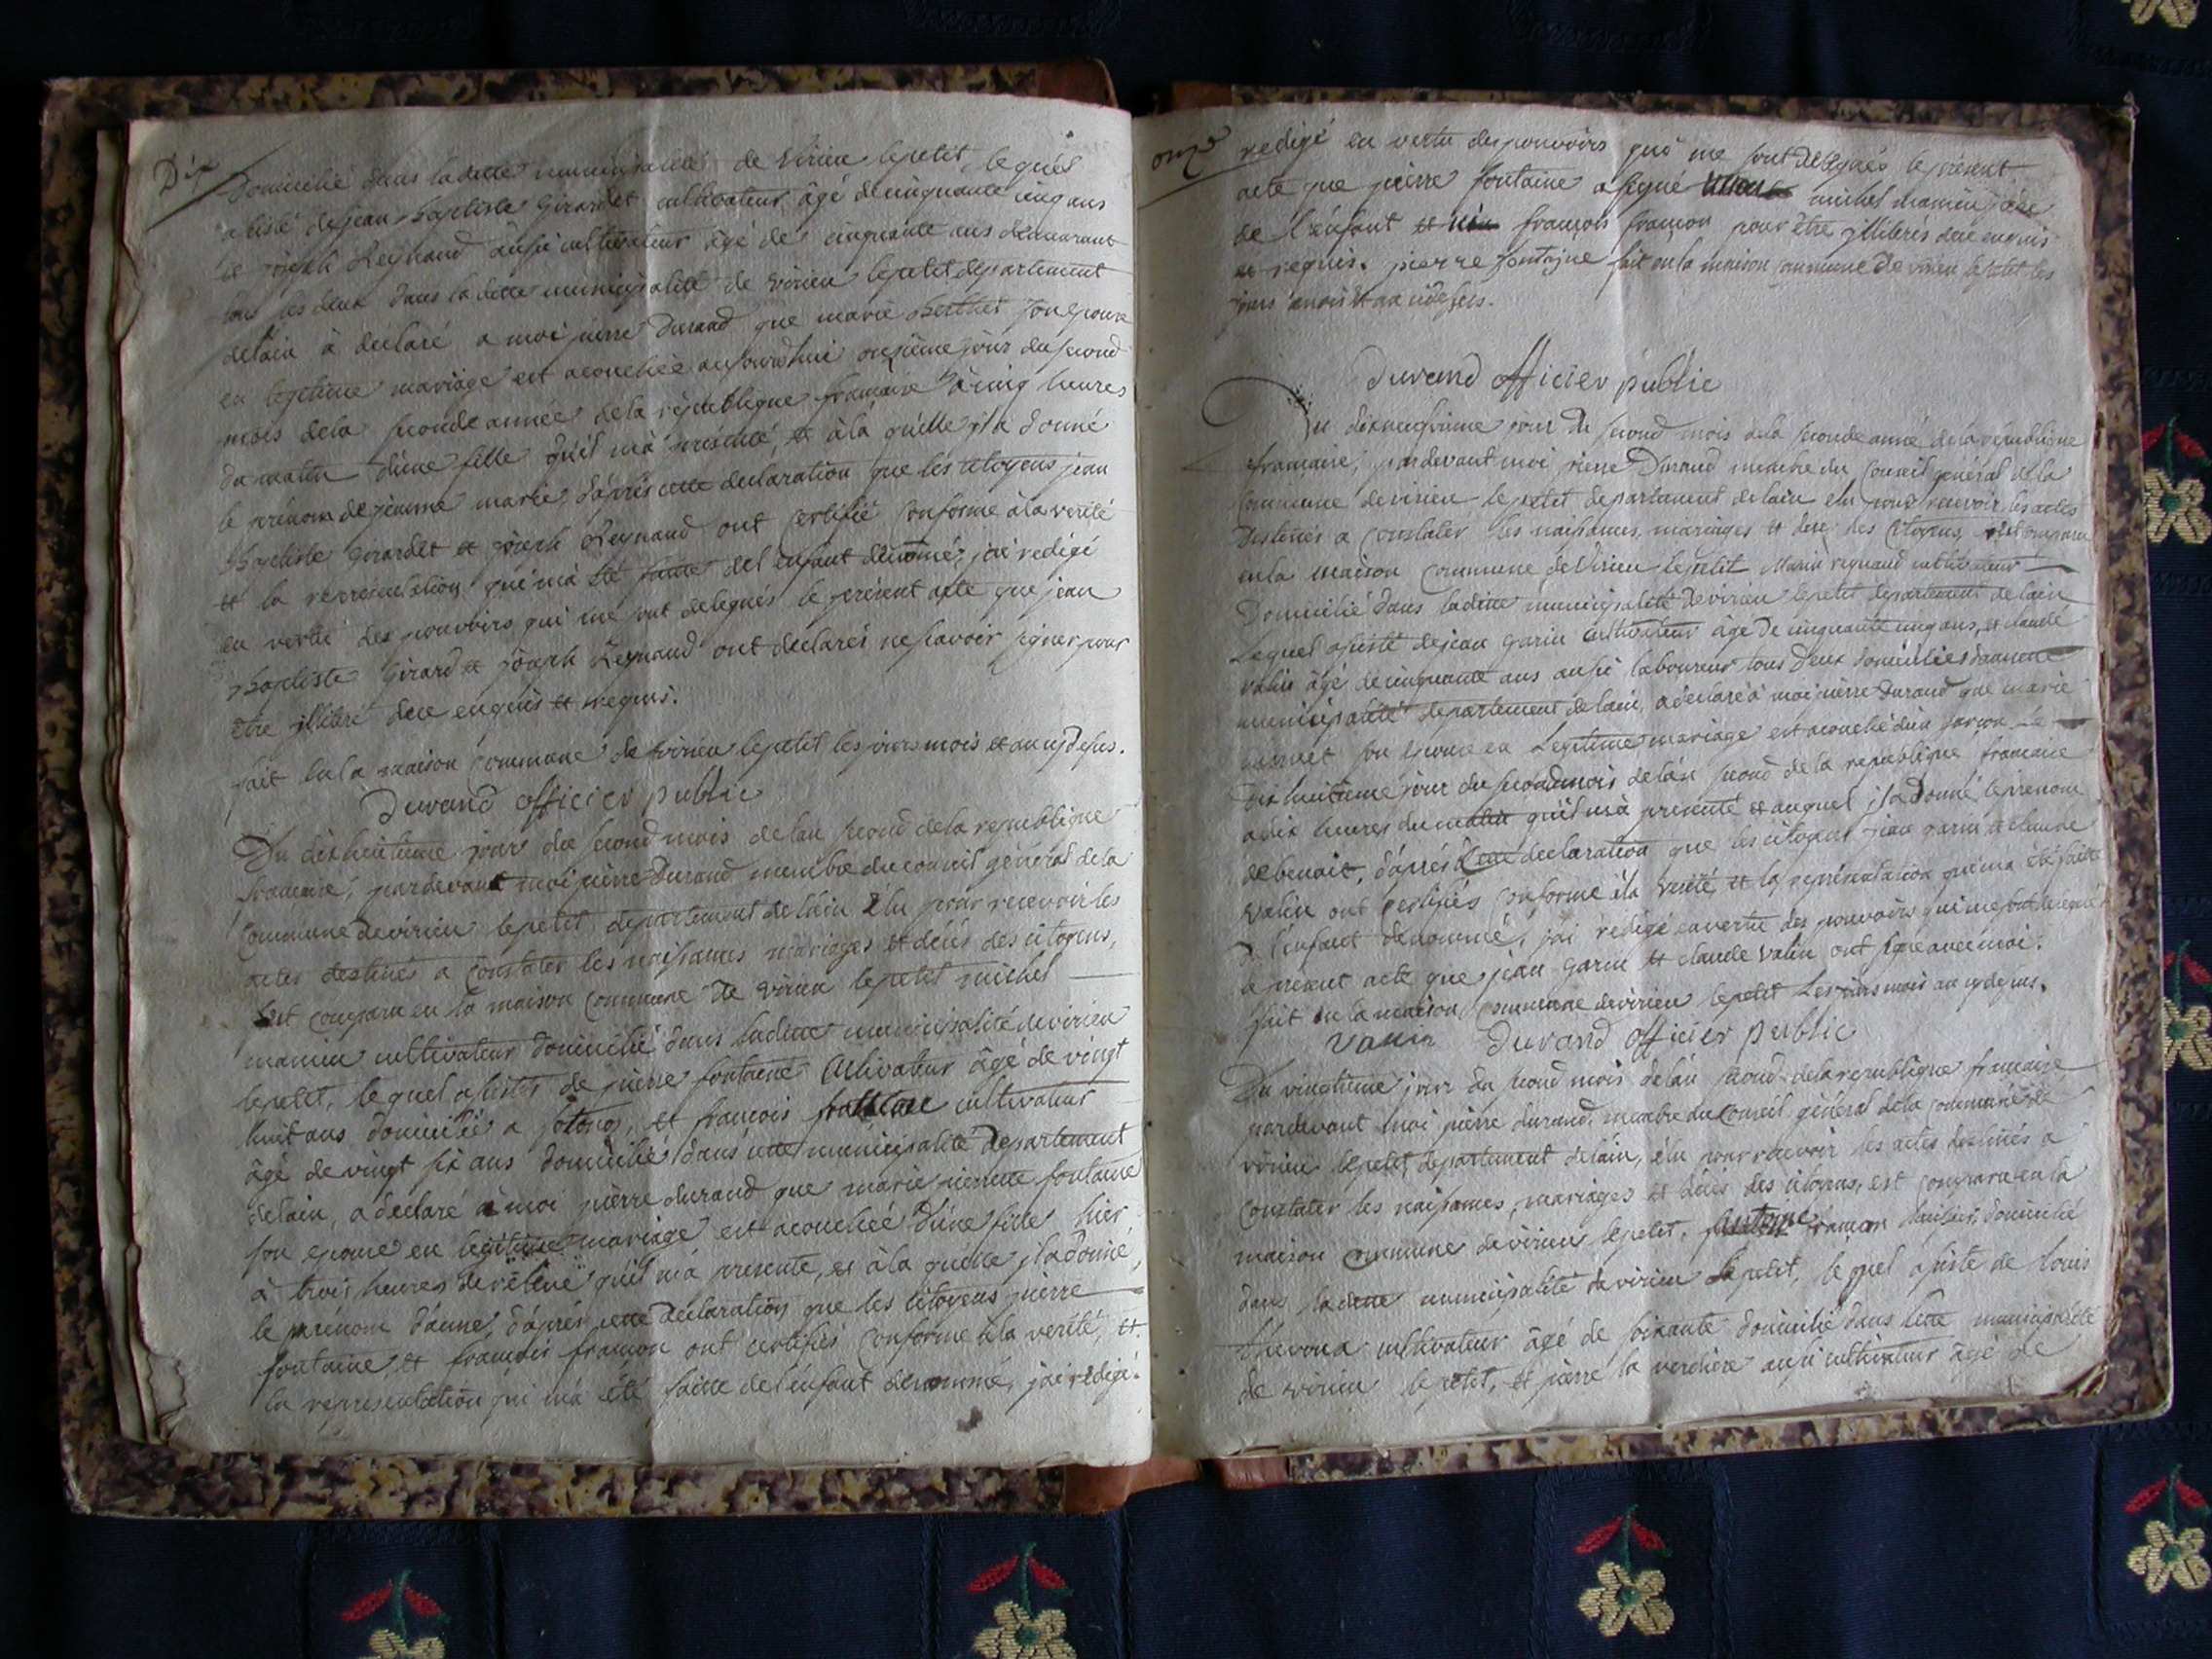 Dix
Domicilié dans la ditte municipalité de virieu lepetit, lequel
assisté de jean Baptiste Girardet cultivateur âgé de cinquante cinq ans
et joseph Reynaud aussi cultivateur âgé de cinquante ans demeurant
tous les deux dans la ditte municipalité de virieu lepetit departement
delain à déclaré a moi pierre Durand que marie Berthet son epouse
en legitime mariage est acouchée aujourdhui onzième jour du second
mois dela seconde année dela république francaise à cinq heures
du matin d'une fille qu'il m'a presenté, et à la quelle il a donné
le prénom de jeanne marie, d'après cette declaration que les citoyens jean
Baptiste Girardet et joseph Reynaud ont certifié conforme à la verité
et la representation qui m'a été faitte del enfant denomé, jai redigé
en vertu des pouvoirs qui me sont delegués le présent acte que jean
Baptiste Girard et joseph Reynaud ont declarés ne savoir signer pour
être illiteré dece enquis et requis.
fait en la maison commune de virieu lepetit les jours mois et an cy dessus.
Durand officier public
Du dixhuitieme jour du second mois delan second dela republique
francaise, pardevant moi pierre Durand membre du conseil général de la
commune devirieu lepetit departement de lain élu pour recevoir les
actes destinés a constater les naissances mariages et décés des citoyens,
est comparu en la maison commune de virieu lepetit michel
mamin cultivateur domicilié dans laditte municipalité devirieu
lepetit, lequel assistés de pierre fontaine cultivateur âgé de vingt
huit ans domicilié a , et francois cultivateur
âgé de vingt six ans domicilié dans cette municipalité departement
delain, a declaré a moi pierre durand que marie pierrette fontaine
son epouse en legitime mariage est acouchée d'une fille hier
à trois heures de qu'il m'a presenté, et à la quelle il a donné,
le prénom d'anne, d'après cette declaration que les citoyens pierre
fontaine, et francois framon ont certifiés conforme à la verité, et
la representation qui m'a été faitte de l'enfant denommé, jai redigé.
onze
redigé en vertu des pouvoirs qui me sont délégués le présent
acte que pierre fontaine a signé michel mamin père
de l'enfant et françois framon pour être illiterés dece enquis
et requis. pierre fontaine fait en la maison commune de virieu lepetit les
jours mois et an cidessus.
Durand officier public
Du dixneuvième jour du second mois dela seconde année dela république
francaise, pardevant moi pierre Durand membre du conseil général de la
commune devirieu lepetit departement delain elu pour recevoir les actes
Destinés a constater les naissances, mariages et dece des citoyens, est comparu
en la maison commune de virieu lepetit Marin reynaud cultivateur
Domicilié dans laditte municipalité devirieu lepetit departement delain
Lequel assisté dejean garin cultivateur âgé de cinquante cinq ans, et claude
valin âgé de cinquante ans aussi laboureur tous deux domiciliés dans cette
municipalité departement delain, a declaré à moi pierre Durand que marie
son epouse en Legitime mariage est acouché d'un garçon Le
dix huitieme jour du second mois de lan second de la republique francaise
a dix heures du matin qu'il m'a presenté et auquel il a donné, le prenom
debenoit, d'après cette declaration que les citoyens jean garin et claude
valin ont certifiés conforme à la verité, et la representation qui m'a été faitte
de l'enfant denommé, jai redigé en vertu des pouvoirs qui me sont delegués
le present acte que jean garin et claude valin ont signé avec moi.
fait en la maison commune devirieu lepetit les jours mois an cy dessus.
Valin Durand officier public
Du vingtieme jour du second mois delan second dela republique francaise
pardevant moi pierre durand, membre du conseil général dela commune de
virieu lepetit departement delain, élu pour recevoir les actes destinés a
constater les naissances, mariages et décès des citoyens, est comparu en la
maison commune devirieu lepetit, framon huissier, domicilié
dans laditte municipalité de virieu lepetit, lequel assisté de Louis
cultivateur âgé de soixante domicilié dans cette municipalité
de virieu le petit, et pierre la verdière aussi cultivateur âgé de